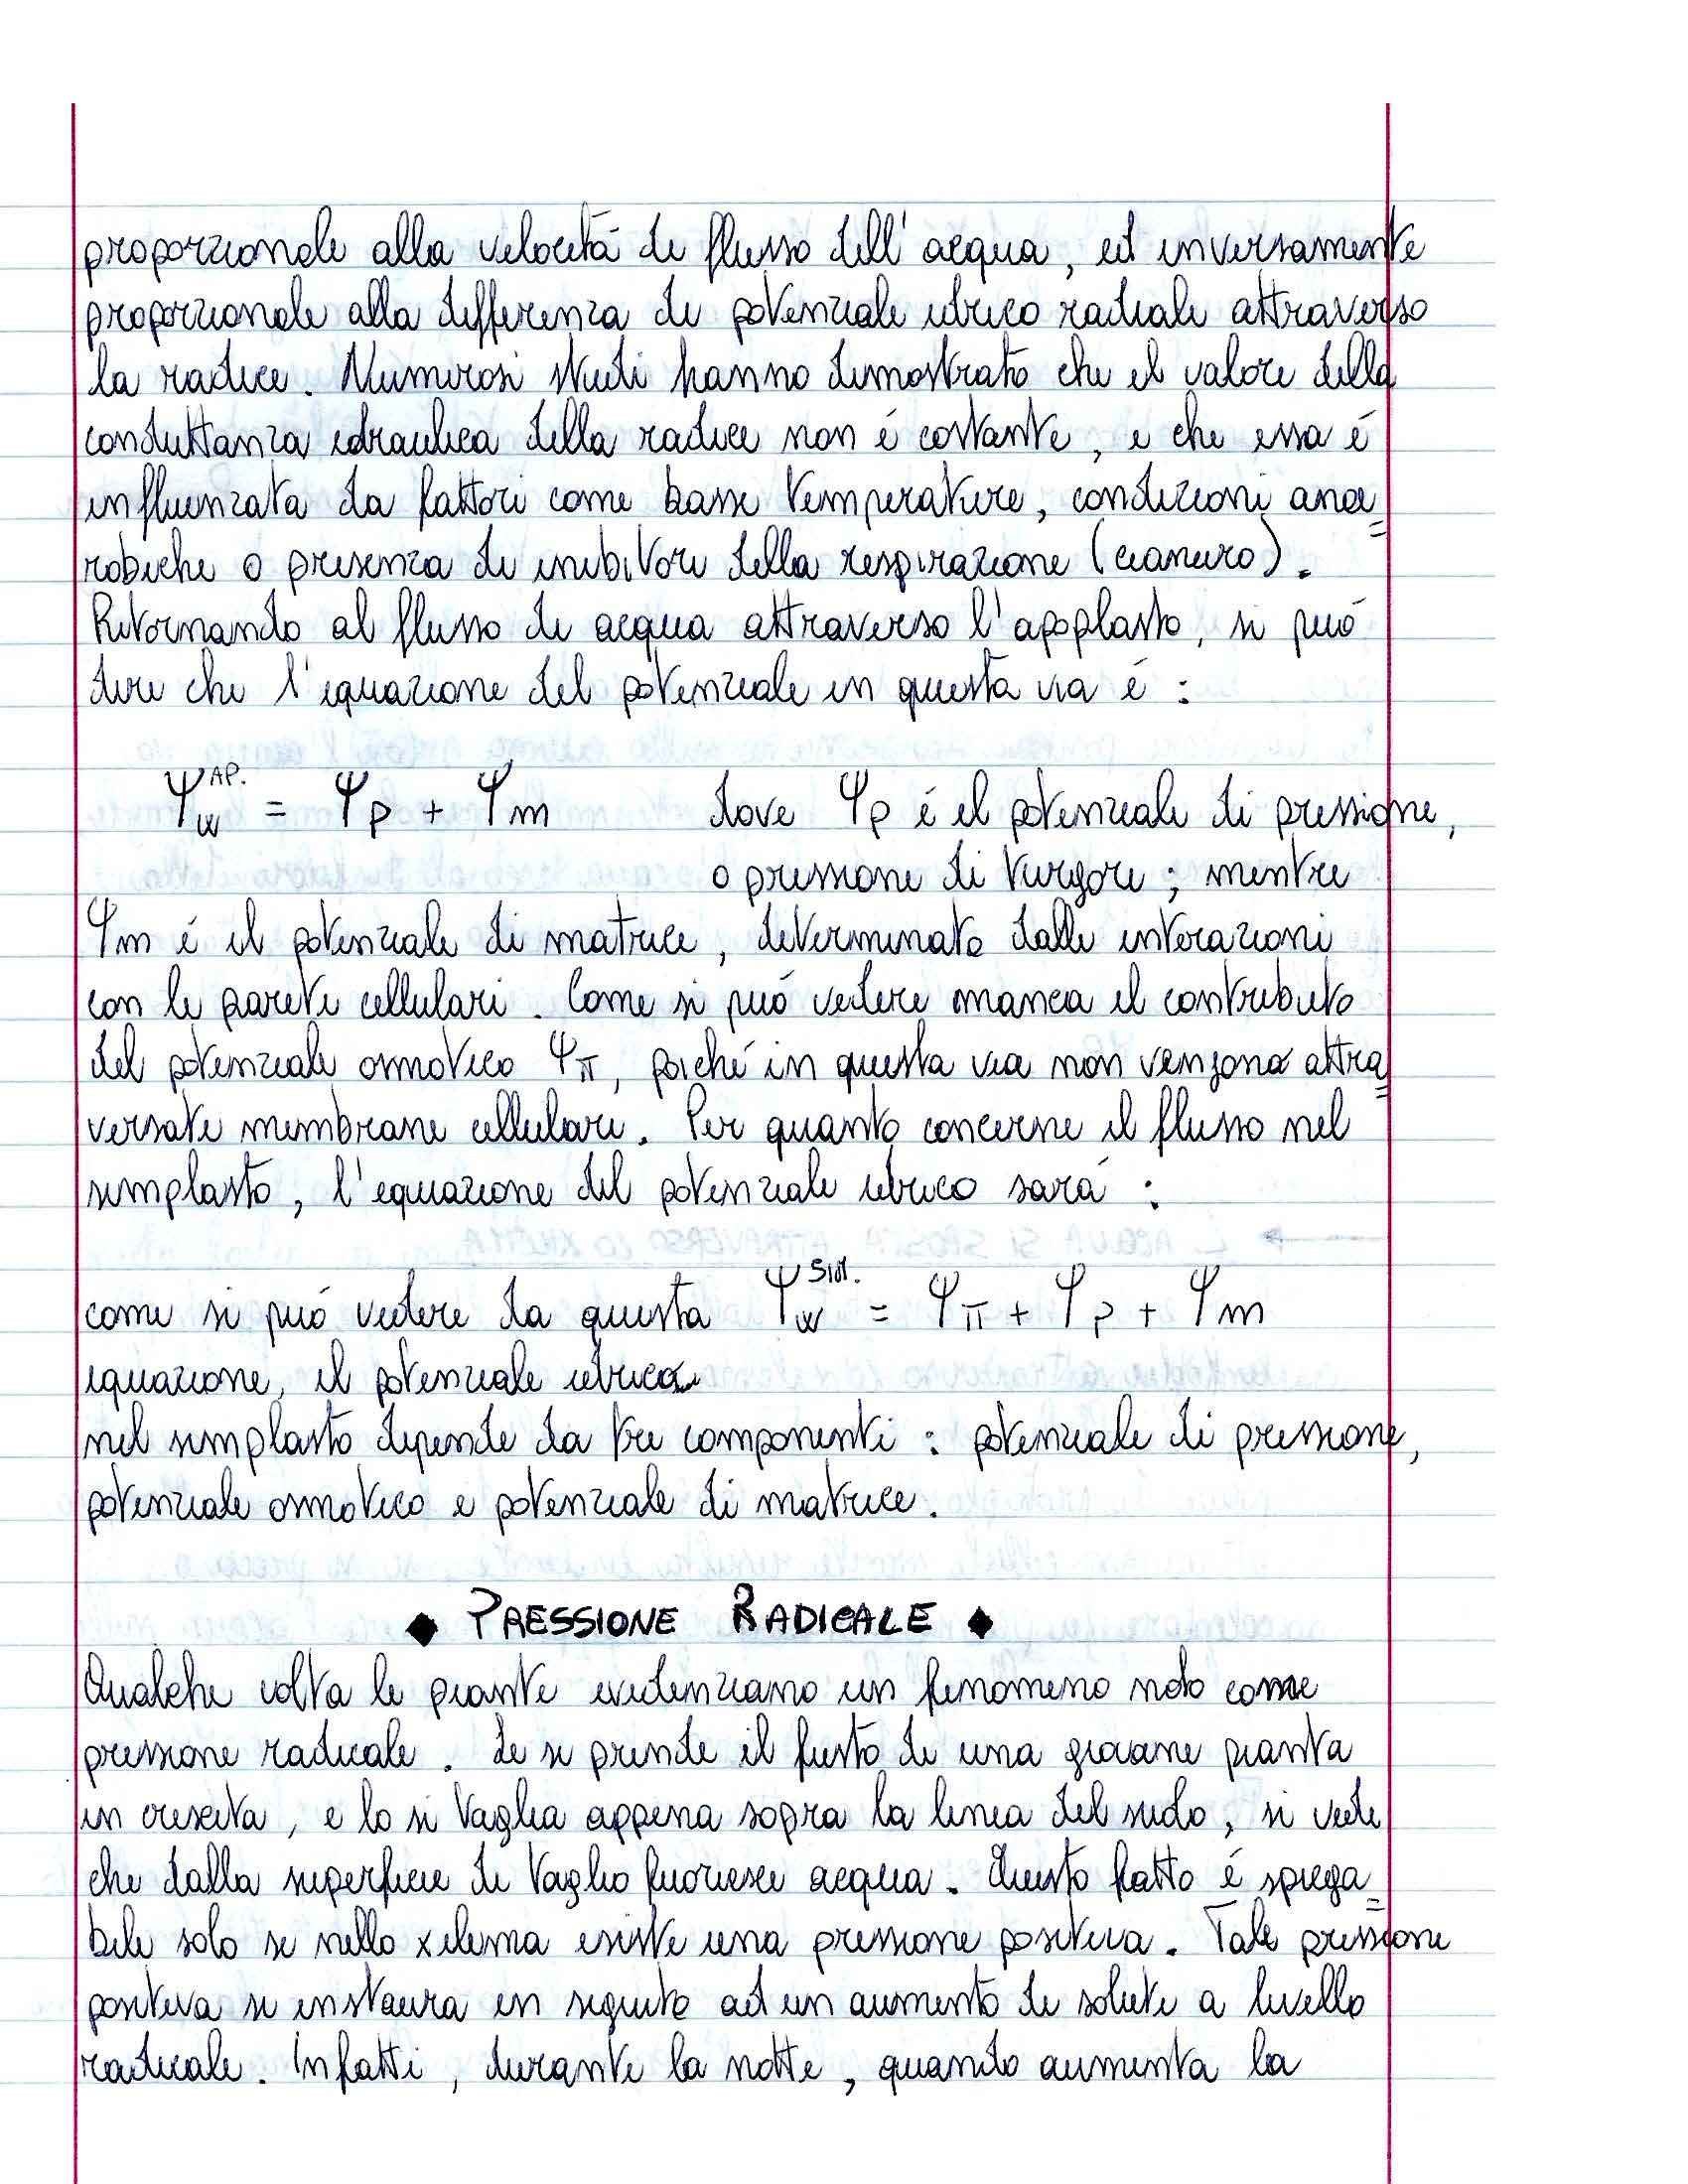 proporzionale alla velocitá di flusso dell'acqua, ed inversamente
proporzionale alla differenza di potenziale idrico radiale attraverso
la radice. Numerosi studi hanno dimostrato che il valore della
conduttanza idraulica della radice non é costante, e che essa é
influenzata da fattori come basse temperature, condizioni anae=
robiche o presenza di inibitori della respirazione (cianuro).
Ritornando al flusso di acqua attraverso l'apoplasto, si puó
dire che l'equazione del potenziale in questa via é :
Ψw^AP. = Ψp + Ψm dove Ψp é il potenziale di pressione,
o pressione di turgore ; mentre
Ψm é il potenziale di matrice, determinato dalle interazioni
con le pareti cellulari. Come si puó vedere manca il contributo
del potenziale osmotico Ψπ, poiché in questa via non vengono attra=
versate membrane cellulari. Per quanto concerne il flusso nel
simplasto, l'equazione del potenziale idrico sará :
come si puó vedere da questa Ψw^SIM. = Ψπ + Ψp + Ψm
equazione, il potenziale idrico
nel simplasto dipende da tre componenti : potenziale di pressione,
potenziale osmotico e potenziale di matrice.
◆ PRESSIONE RADICALE ◆
Qualche volta le piante evidenziano un fenomeno noto come
pressione radicale. Se si prende il fusto di una giovane pianta
in crescita, e lo si taglia appena sopra la linea del suolo, si vede
che dalla superficie di taglio fuoriesce acqua. Questo fatto é spiega=
bile solo se nello xilema esiste una pressione positiva. Tale pressione
positiva si instaura in seguito ad un aumento di soluti a livello
radicale. Infatti, durante la notte, quando aumenta la